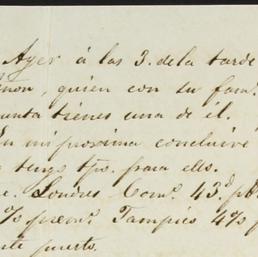 Ayer á las 3. de la tarde
non, quien con su fam.
unta tienes una de él.
En mi proxima concluiré
tengo tpo. para ello.
Londres Com.º 43.d
% prem.º Tampico 4%
te puerto.